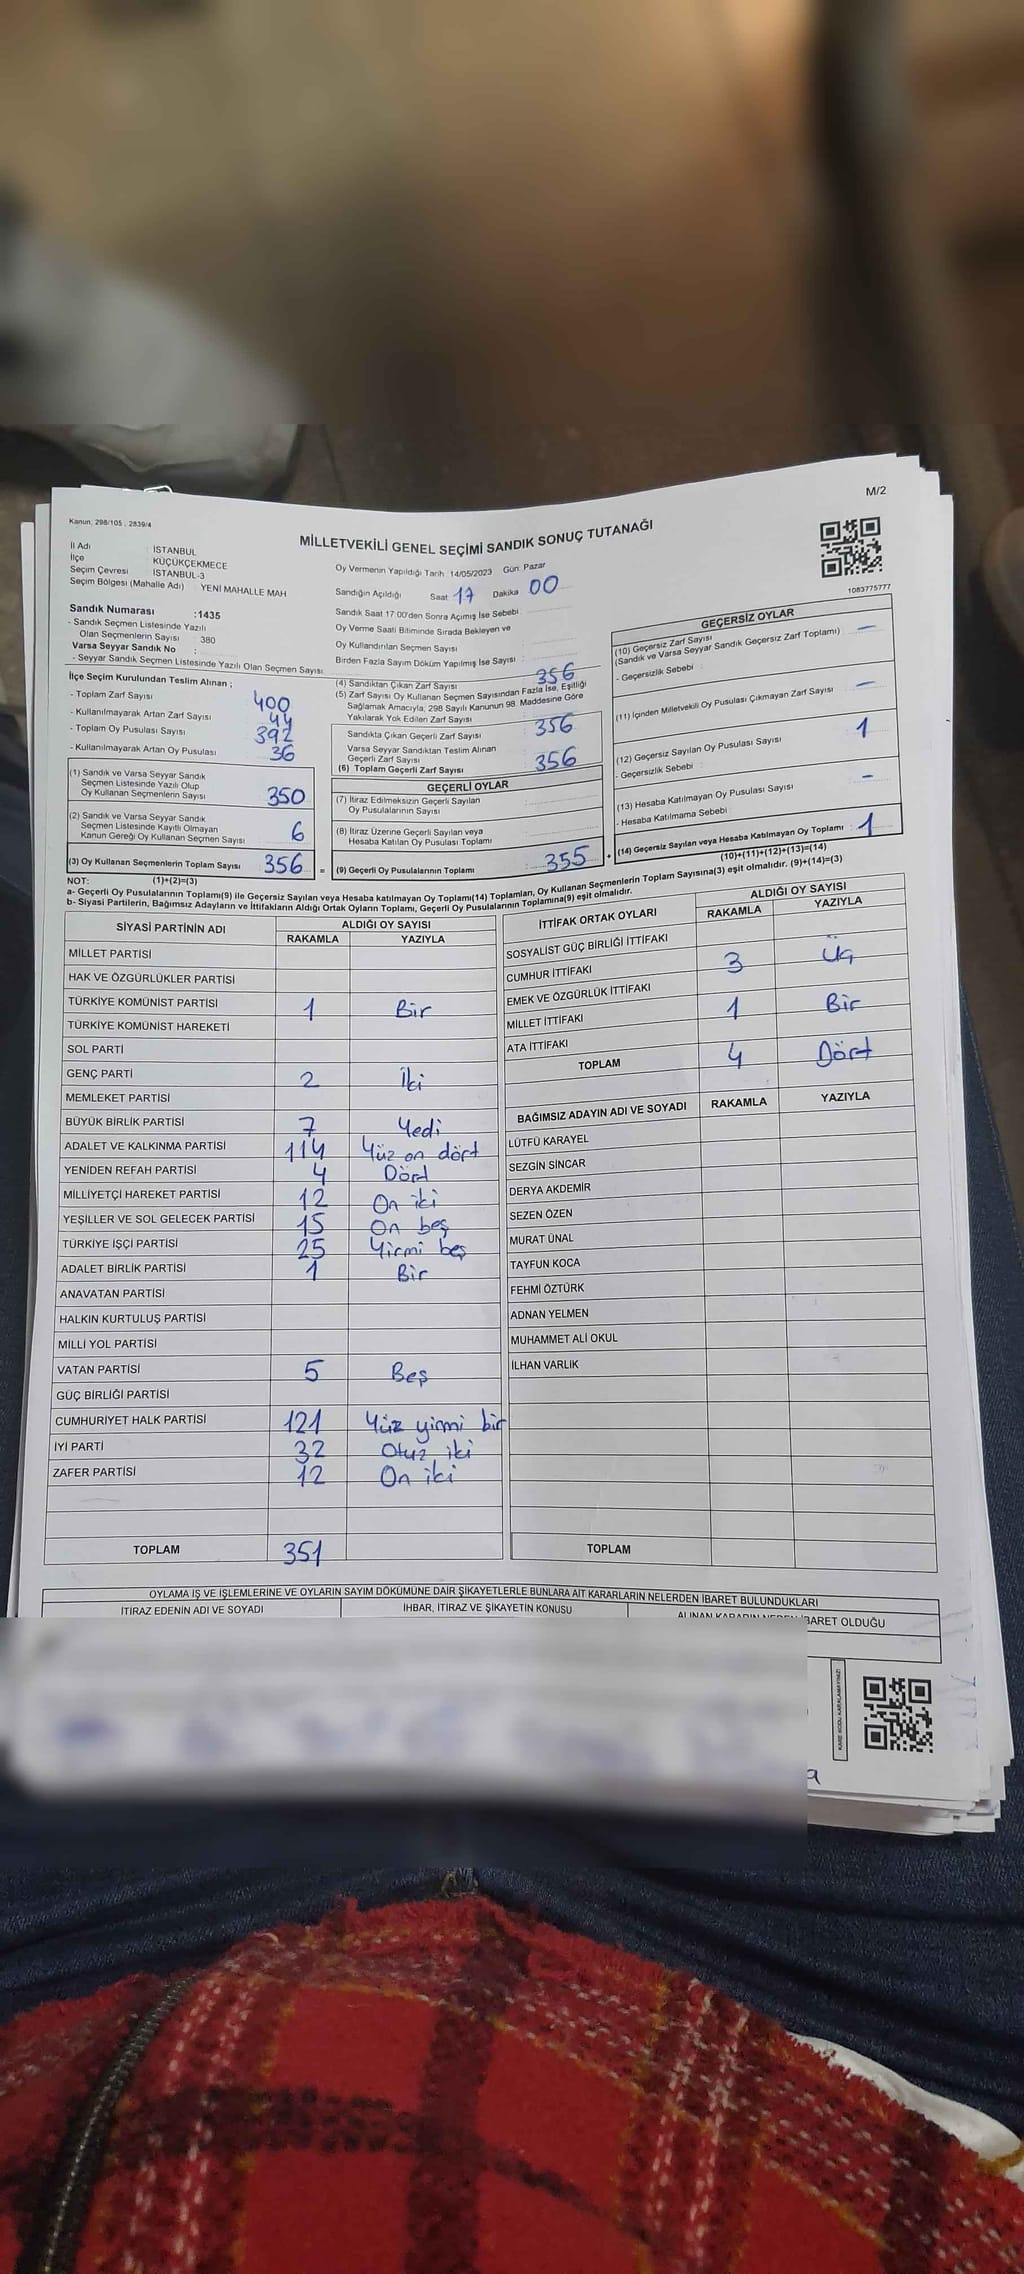 M/2
Kanun, 298/105 , 2839/4
MİLLETVEKİLİ GENEL SEÇİMİ SANDIK SONUÇ TUTANAĞI
1083775777
İl Adı : İSTANBUL
İlçe : KÜÇÜKÇEKMECE
Seçim Çevresi : İSTANBUL-3
Seçim Bölgesi (Mahalle Adı) YENİ MAHALLE MAH
Sandık Numarası :1435
- Sandık Seçmen Listesinde Yazılı
Olan Seçmenlerin Sayısı : 380
Varsa Seyyar Sandık No :
- Seyyar Sandık Seçmen Listesinde Yazılı Olan Seçmen Sayısı
Oy Vermenin Yapıldığı Tarih 14/05/2023 Gün: Pazar
Sandığın Açıldığı Saat 17 Dakika 00
Sandık Saat 17:00'den Sonra Açımış İse Sebebi :
Oy Verme Saati Bitiminde Sırada Bekleyen ve
Oy Kullandırılan Seçmen Sayısı :
Birden Fazla Sayım Döküm Yapılmış İse Sayısı :
İlçe Seçim Kurulundan Teslim Alınan ;
- Toplam Zarf Sayısı 400
- Kullanılmayarak Artan Zarf Sayısı 44
- Toplam Oy Pusulası Sayısı 392
- Kullanılmayarak Artan Oy Pusulası 36
(1) Sandık ve Varsa Seyyar Sandık
Seçmen Listesinde Yazılı Olup
Oy Kullanan Seçmenlerin Sayısı 350
(2) Sandık ve Varsa Seyyar Sandık
Seçmen Listesinde Kayıtlı Olmayan
Kanun Gereği Oy Kullanan Seçmen Sayısı 6
(3) Oy Kullanan Seçmenlerin Toplam Sayısı 356
(4) Sandıktan Çıkan Zarf Sayısı 356
(5) Zarf Sayısı Oy Kullanan Seçmen Sayısından Fazla İse, Eşitliği
Sağlamak Amacıyla, 298 Sayılı Kanunun 98. Maddesine Göre
Yakılarak Yok Edilen Zarf Sayısı
Sandıkta Çıkan Geçerli Zarf Sayısı 356
Varsa Seyyar Sandıktan Teslim Alınan
Geçerli Zarf Sayısı
(6) Toplam Geçerli Zarf Sayısı 356
GEÇERLİ OYLAR
(7) İtiraz Edilmeksizin Geçerli Sayılan
Oy Pusulalarının Sayısı
(8) İtiraz Üzerine Geçerli Sayılan veya
Hesaba Katılan Oy Pusulası Toplamı
= (9) Geçerli Oy Pusulalarının Toplamı : 355
GEÇERSİZ OYLAR
(10) Geçersiz Zarf Sayısı
(Sandık ve Varsa Seyyar Sandık Geçersiz Zarf Toplamı) —
- Geçersizlik Sebebi :
(11) İçinden Milletvekili Oy Pusulası Çıkmayan Zarf Sayısı —
(12) Geçersiz Sayılan Oy Pusulası Sayısı 1
- Geçersizlik Sebebi :
(13) Hesaba Katılmayan Oy Pusulası Sayısı —
- Hesaba Katılmama Sebebi
+ (14) Geçersiz Sayılan veya Hesaba Katılmayan Oy Toplamı : 1
(10)+(11)+(12)+(13)=(14)
NOT: (1)+(2)=(3)
a- Geçerli Oy Pusulalarının Toplamı(9) ile Geçersiz Sayılan veya Hesaba katılmayan Oy Toplamı(14) Toplamları, Oy Kullanan Seçmenlerin Toplam Sayısına(3) eşit olmalıdır. (9)+(14)=(3)
b- Siyasi Partilerin, Bağımsız Adayların ve İttifakların Aldığı Ortak Oyların Toplamı, Geçerli Oy Pusulalarının Toplamına(9) eşit olmalıdır.
SİYASİ PARTİNİN ADI ALDIĞI OY SAYISI
RAKAMLA YAZIYLA
MİLLET PARTİSİ
HAK VE ÖZGÜRLÜKLER PARTİSİ
TÜRKİYE KOMÜNİST PARTİSİ 1 Bir
TÜRKİYE KOMÜNİST HAREKETİ
SOL PARTİ
GENÇ PARTİ 2 İki
MEMLEKET PARTİSİ
BÜYÜK BİRLİK PARTİSİ 7 Yedi
ADALET VE KALKINMA PARTİSİ 114 Yüz on dört
YENİDEN REFAH PARTİSİ 4 Dört
MİLLİYETÇİ HAREKET PARTİSİ 12 On iki
YEŞİLLER VE SOL GELECEK PARTİSİ 15 On beş
TÜRKİYE İŞÇİ PARTİSİ 25 Yirmi beş
ADALET BİRLİK PARTİSİ 1 Bir
ANAVATAN PARTİSİ
HALKIN KURTULUŞ PARTİSİ
MİLLİ YOL PARTİSİ
VATAN PARTİSİ 5 Beş
GÜÇ BİRLİĞİ PARTİSİ
CUMHURİYET HALK PARTİSİ 121 Yüz yirmi bir
İYİ PARTİ 32 Otuz iki
ZAFER PARTİSİ 12 On iki
TOPLAM 351
İTTİFAK ORTAK OYLARI ALDIĞI OY SAYISI
RAKAMLA YAZIYLA
SOSYALİST GÜÇ BİRLİĞİ İTTİFAKI
CUMHUR İTTİFAKI 3 Üç
EMEK VE ÖZGÜRLÜK İTTİFAKI
MİLLET İTTİFAKI 1 Bir
ATA İTTİFAKI
TOPLAM 4 Dört
BAĞIMSIZ ADAYIN ADI VE SOYADI RAKAMLA YAZIYLA
LÜTFÜ KARAYEL
SEZGİN SİNCAR
DERYA AKDEMİR
SEZEN ÖZEN
MURAT ÜNAL
TAYFUN KOCA
FEHMİ ÖZTÜRK
ADNAN YELMEN
MUHAMMET ALİ OKUL
İLHAN VARLIK
TOPLAM
OYLAMA İŞ VE İŞLEMLERİNE VE OYLARIN SAYIM DÖKÜMÜNE DAİR ŞİKAYETLERLE BUNLARA AİT KARARLARIN NELERDEN İBARET BULUNDUKLARI
İTİRAZ EDENİN ADI VE SOYADI İHBAR, İTİRAZ VE ŞİKAYETİN KONUSU ALINAN KARARIN NEDEN İBARET OLDUĞU
KARE KODU KARALAMAYINIZ!